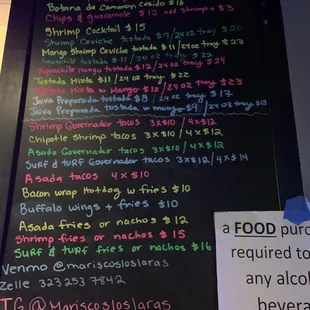 Botana de Camaron Cosido $16
Chips & guacamole $12 add shrimp + $3
Shrimp Cocktail $15
Shrimp Ceviche tostada $9/24oz tray $20
Mango Shrimp Ceviche tostada $11/24oz tray $23
Aguachile tostada $11/24 oz tray $22
Aguachile mango tostada $12/24oz tray $24
Tostada Mixta $11/24 oz tray. $22
Tostada Mixta w Mango $12/24oz tray $23
Jaiva Preparada tostada $8/24oz tray $17
Jaiva Preparada tostada w mango $9/24oz tray $18
Shrimp Governador tacos 3x$10/4x$12
Chipotle shrimp tacos 3x$10/4x$12
Asada Governador tacos 3x$10/4x$12
Surf & turf Governador tacos 3x$12/4x$14
Asada tacos 4x$10
Bacon wrap Hotdog w fries $10
Buffalo wings + fries $10
Asada fries or nachos $12
Shrimp fries or nachos $15
Surf & turf fries or nachos $16
Venmo @mariscosloslaras
Zelle 323 253 7842
IG@Mariscosloslaras
a FOOD purc
required to
any alcol
bevera